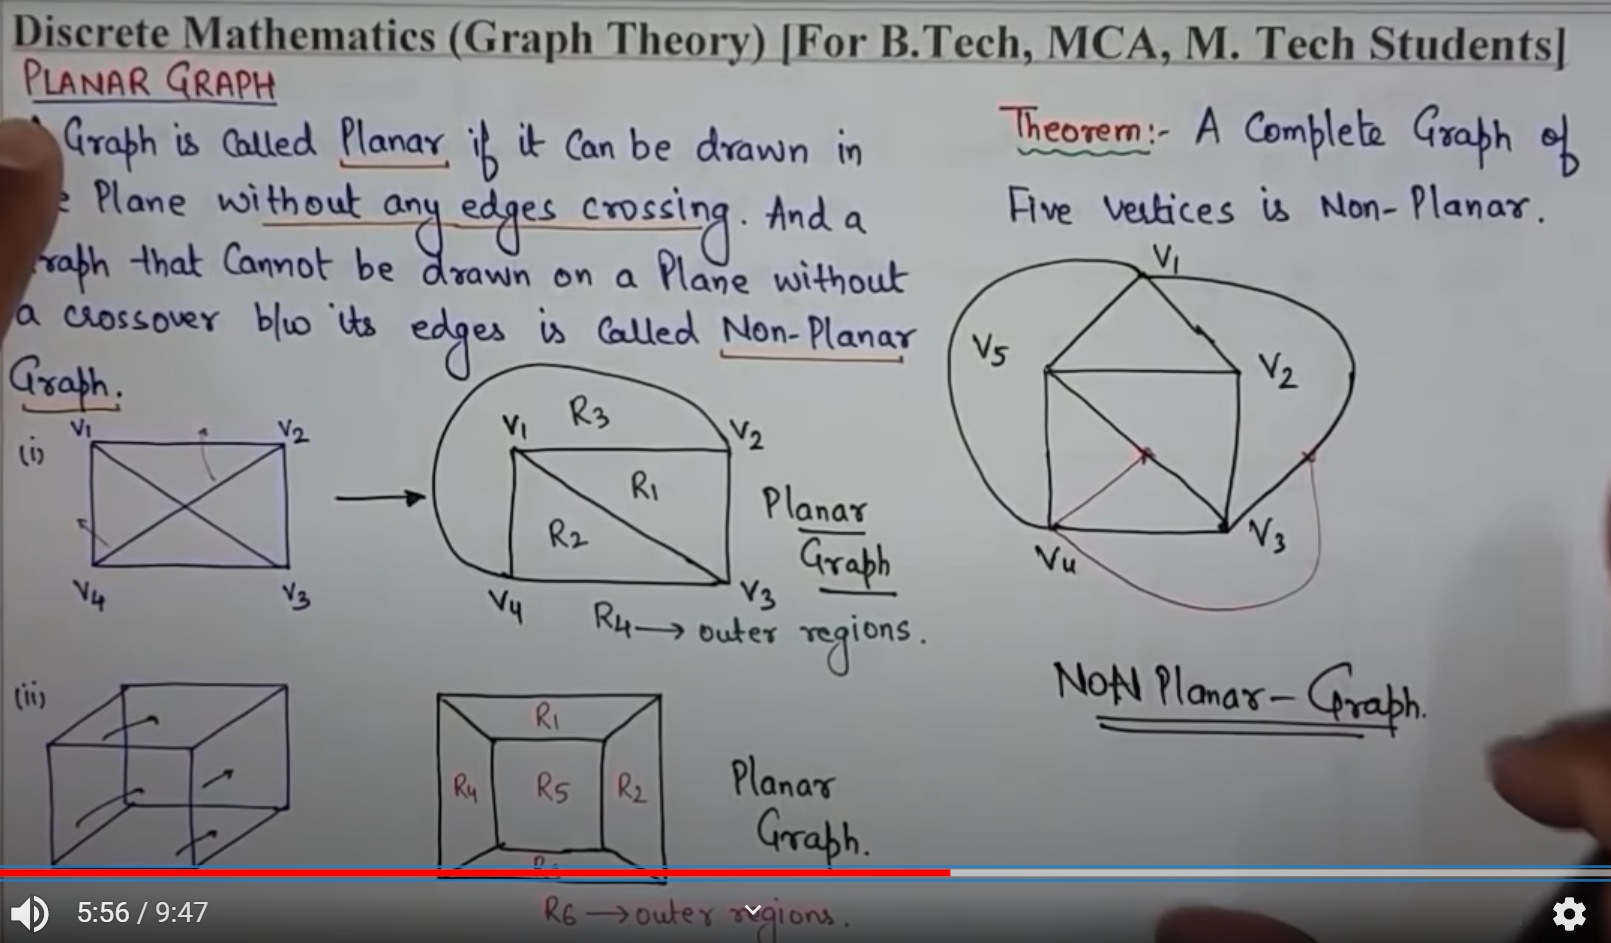 Discrete Mathematics (Graph Theory) [For B.Tech, MCA, M. Tech Students]
PLANAR GRAPH
Graph is called Planar if it can be drawn in
Plane without any edges crossing. And a
raph that Cannot be drawn on a Plane without
a crossover b/w its edges is called Non-Planar
Graph.
(i)
V1
V2
V4
V3
V1
R3
V2
R1
R2
V4
V3
Planar
Graph
R4 → outer regions.
(ii)
R1
R4
R5
R2
Planar
Graph.
R6 → outer regions.
Theorem:- A Complete Graph of
Five vertices is Non-Planar.
V1
V5
V2
V4
V3
NON Planar-Graph.
5:56 / 9:47